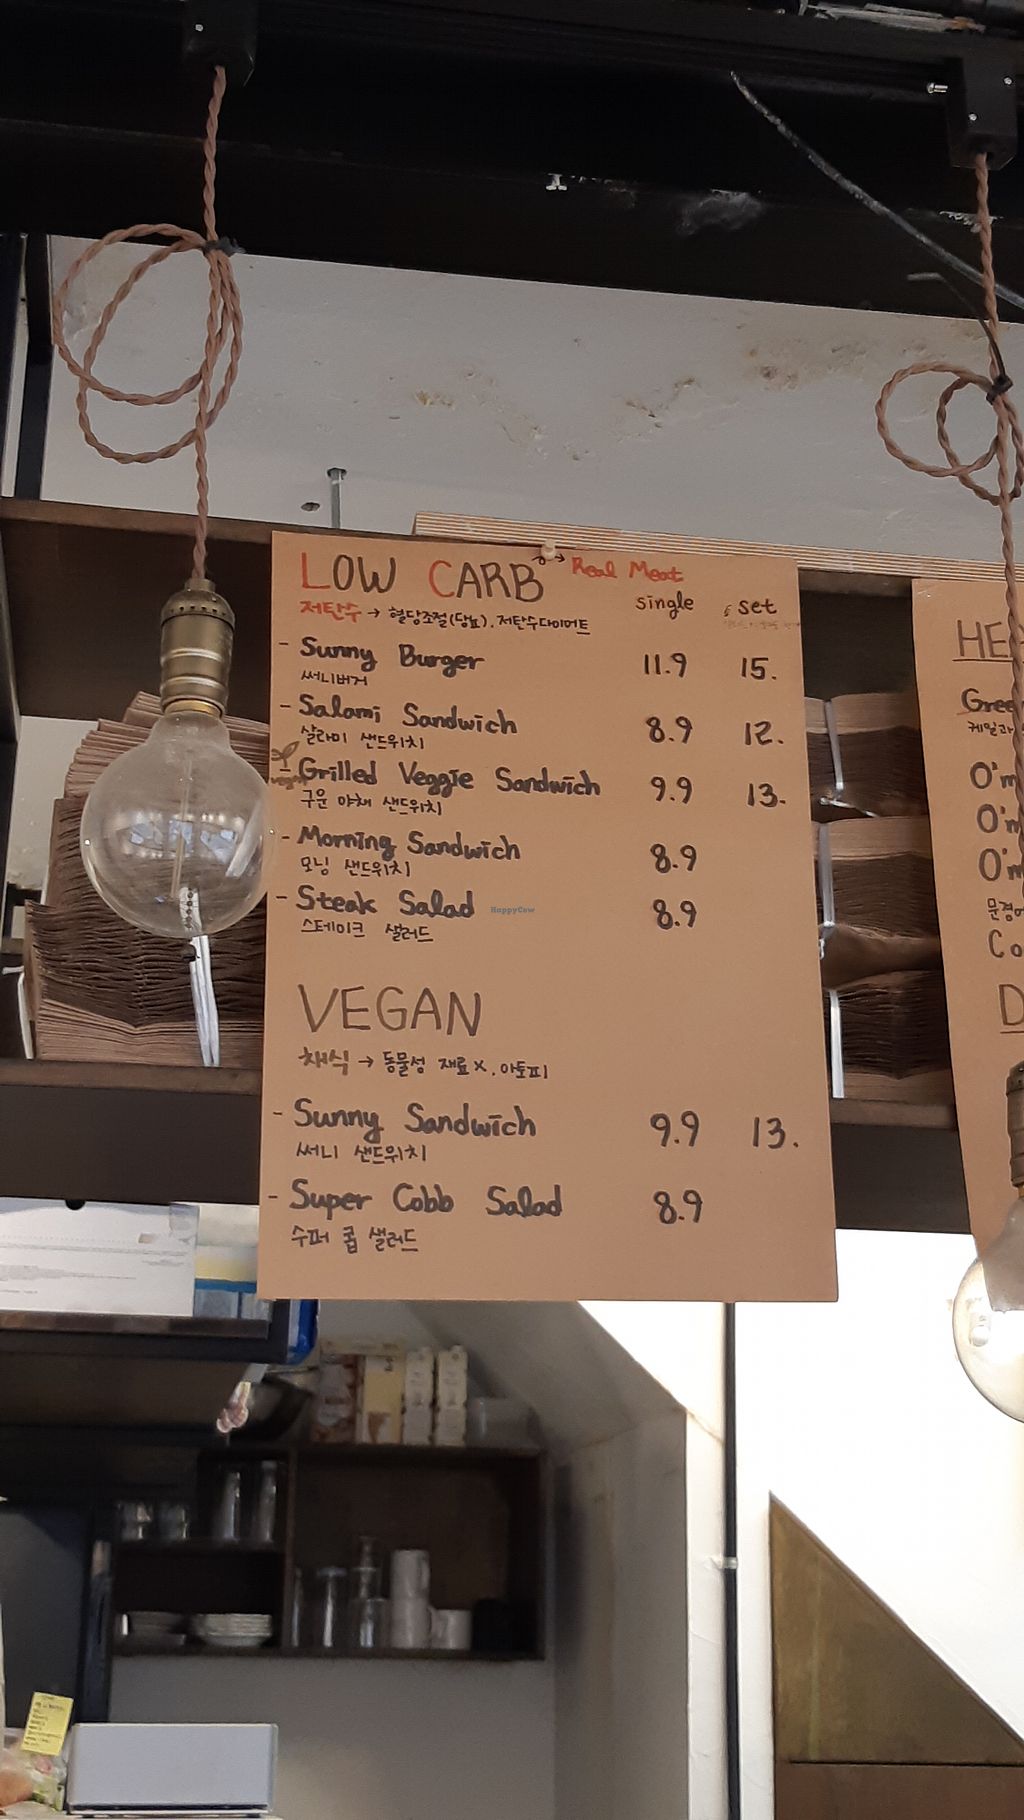 LOW CARB → Real Meat
single set
저탄수 → 혈당조절(당뇨), 저탄수다이어트
- Sunny Burger 11.9 15.
써니버거
- Salami Sandwich 8.9 12.
살라미 샌드위치
vegan
- Grilled Veggie Sandwich 9.9 13.
구운 야채 샌드위치
- Morning Sandwich 8.9
모닝 샌드위치
- Steak Salad 8.9
스테이크 샐러드
HappyCow
VEGAN
채식 → 동물성 재료X, 아토피
- Sunny Sandwich 9.9 13.
써니 샌드위치
- Super Cobb Salad 8.9
수퍼 콥 샐러드
HE
Gree
케일과
O'm
O'm
O'm
문경
Co
D